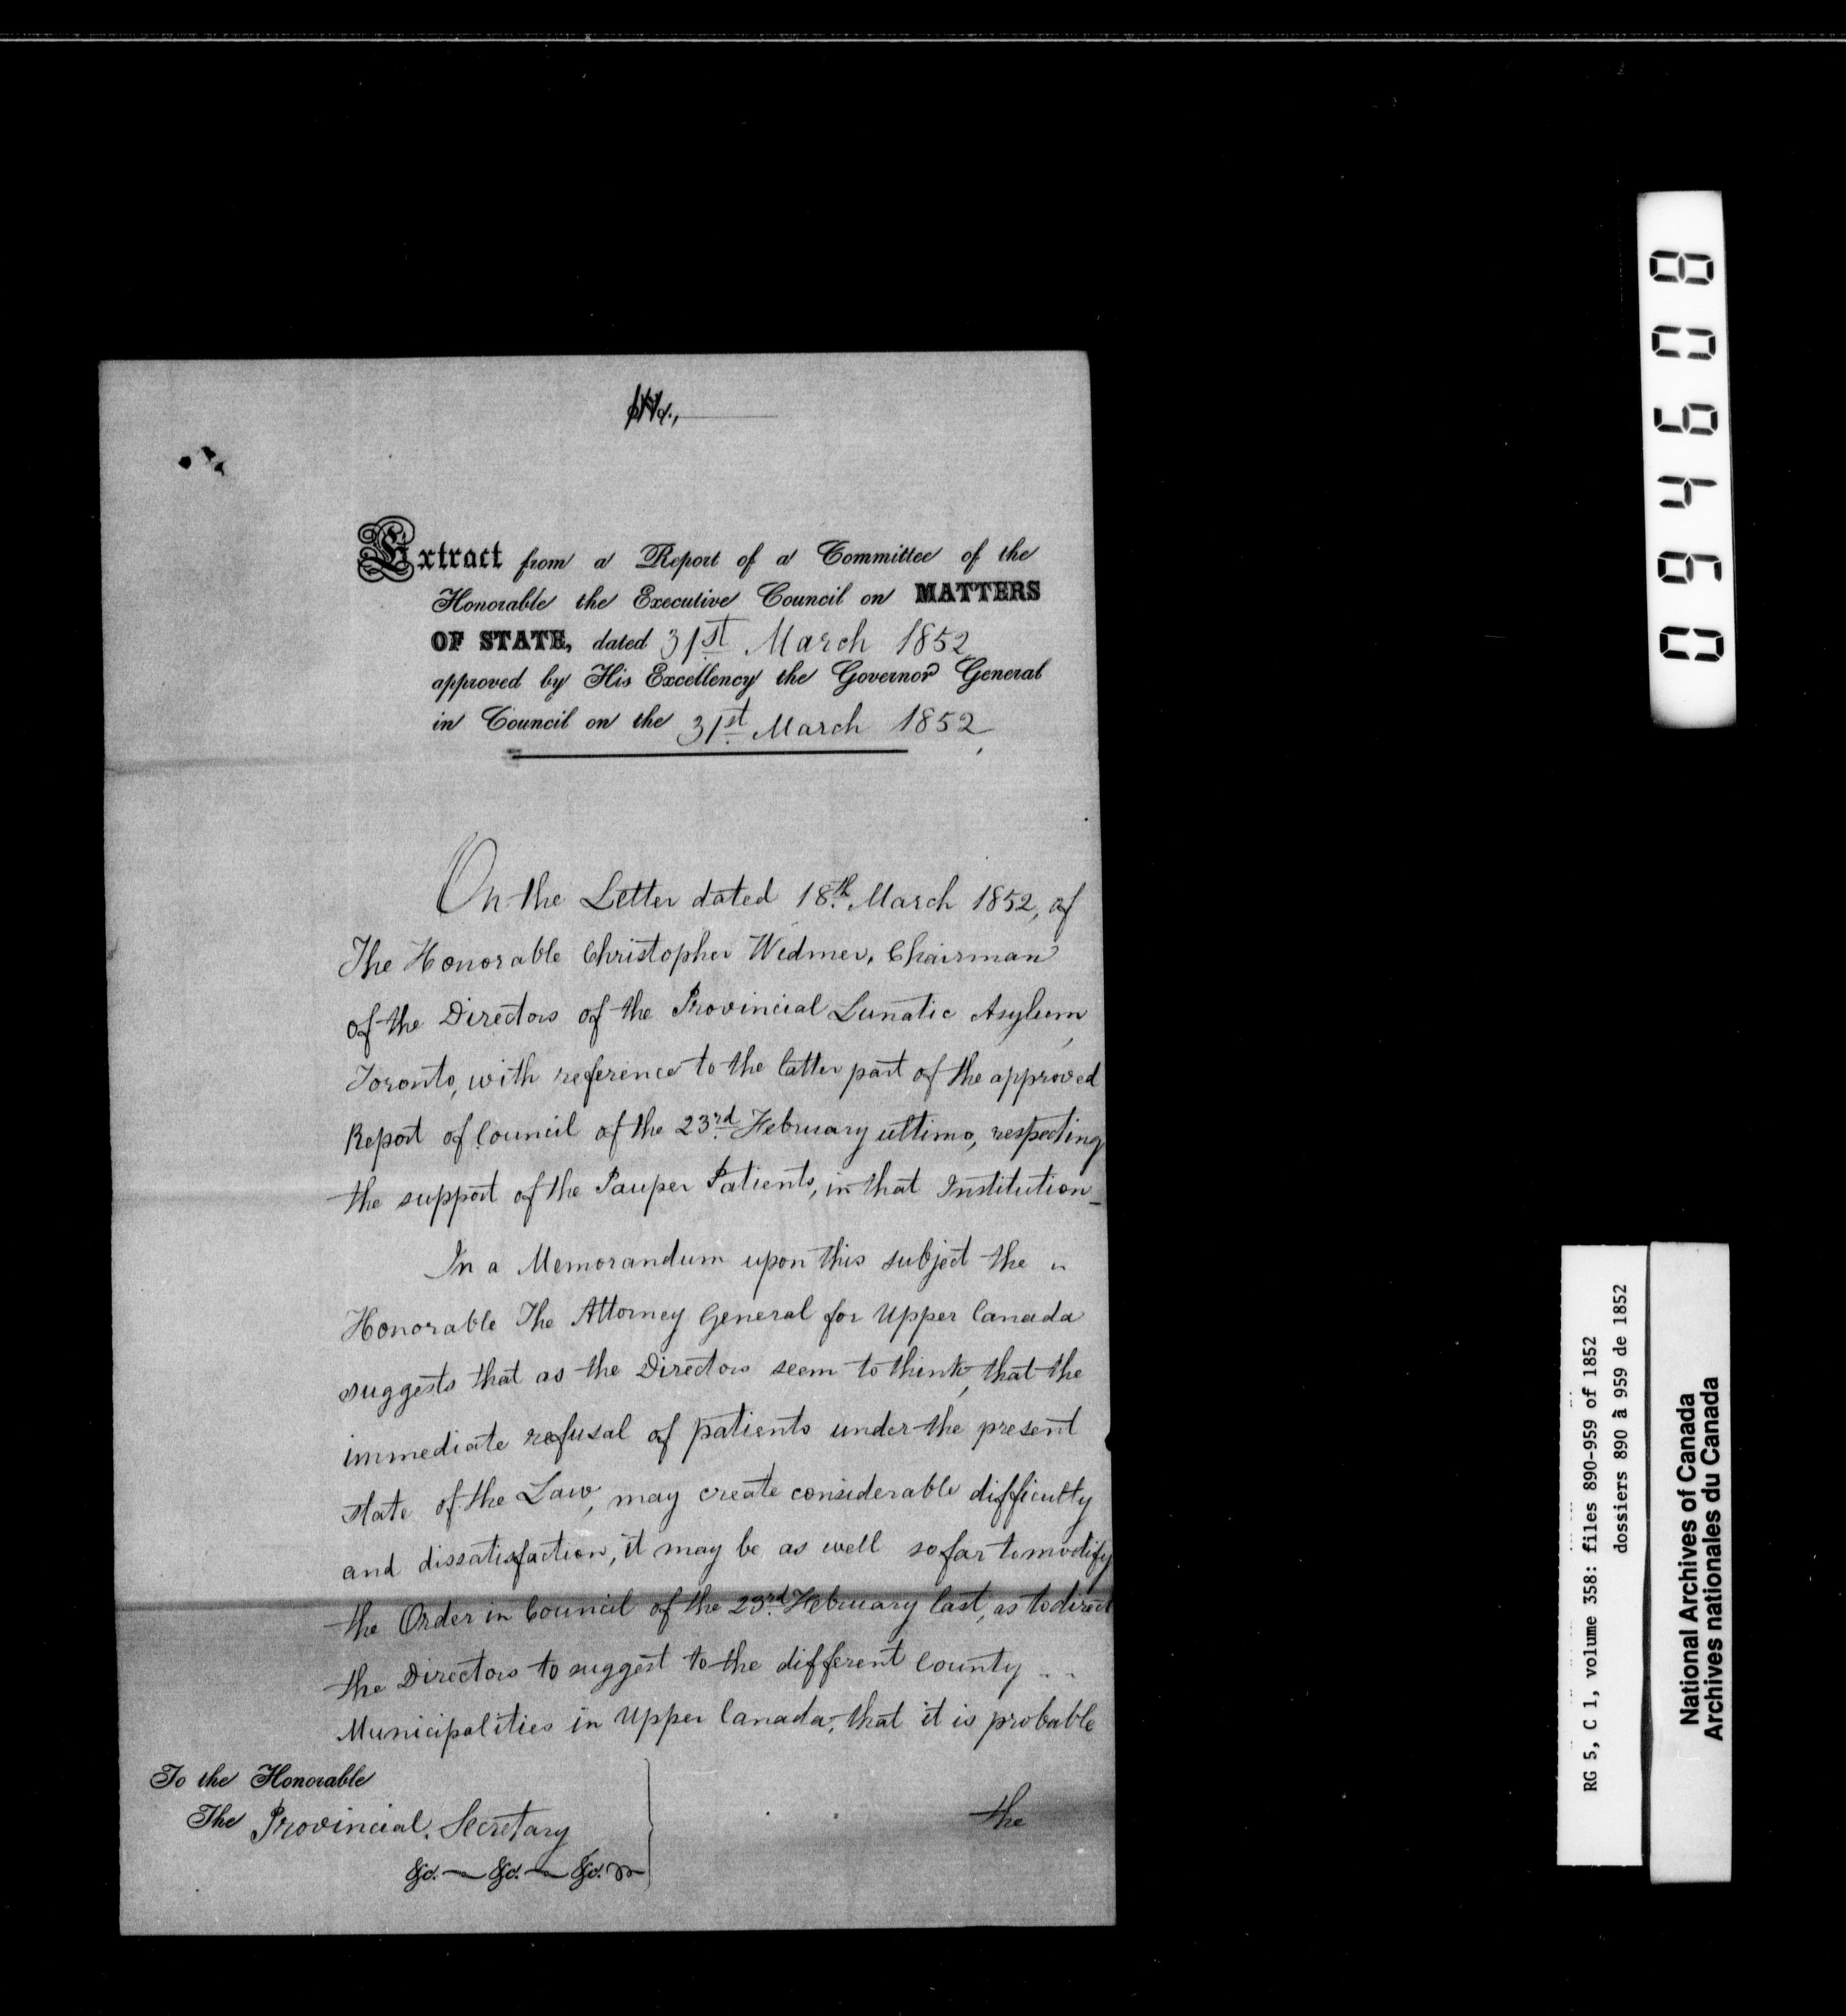 No.,
Extract from a Report of a Committee of the
Honorable the Executive Council on MATTERS
OF STATE, dated 31st March 1852
approved by His Excellency the Governor General
in Council on the 31st March 1852,
On the Letter dated 18th. March 1852, of
The Honorable Christopher Widmer, Chairman
of the Directors of the Provincial Lunatic Asylum,
Toronto, with reference to the latter part of the approved
Report of Council of the 23rd. February ultimo, respecting
the support of the Pauper Patients, in that Institution_
In a Memorandum upon this subject the
Honorable The Attorney General for Upper Canada
suggests that as the Directors seem to think, that the
immediate refusal of patients under the present
state of the Law, may create considerable difficulty
and dissatisfaction, it may be as well so far to modify
the Order in Council of the 23rd. February last, as to direct
the Directors to suggest to the different County
Municipalities in Upper Canada, that it is probable
the
To the Honorable
The Provincial Secretary
&c. &c. &c.
094608
RG 5, C 1, volume 358: files 890-959 of 1852
dossiers 890 à 959 de 1852
National Archives of Canada
Archives nationales du Canada